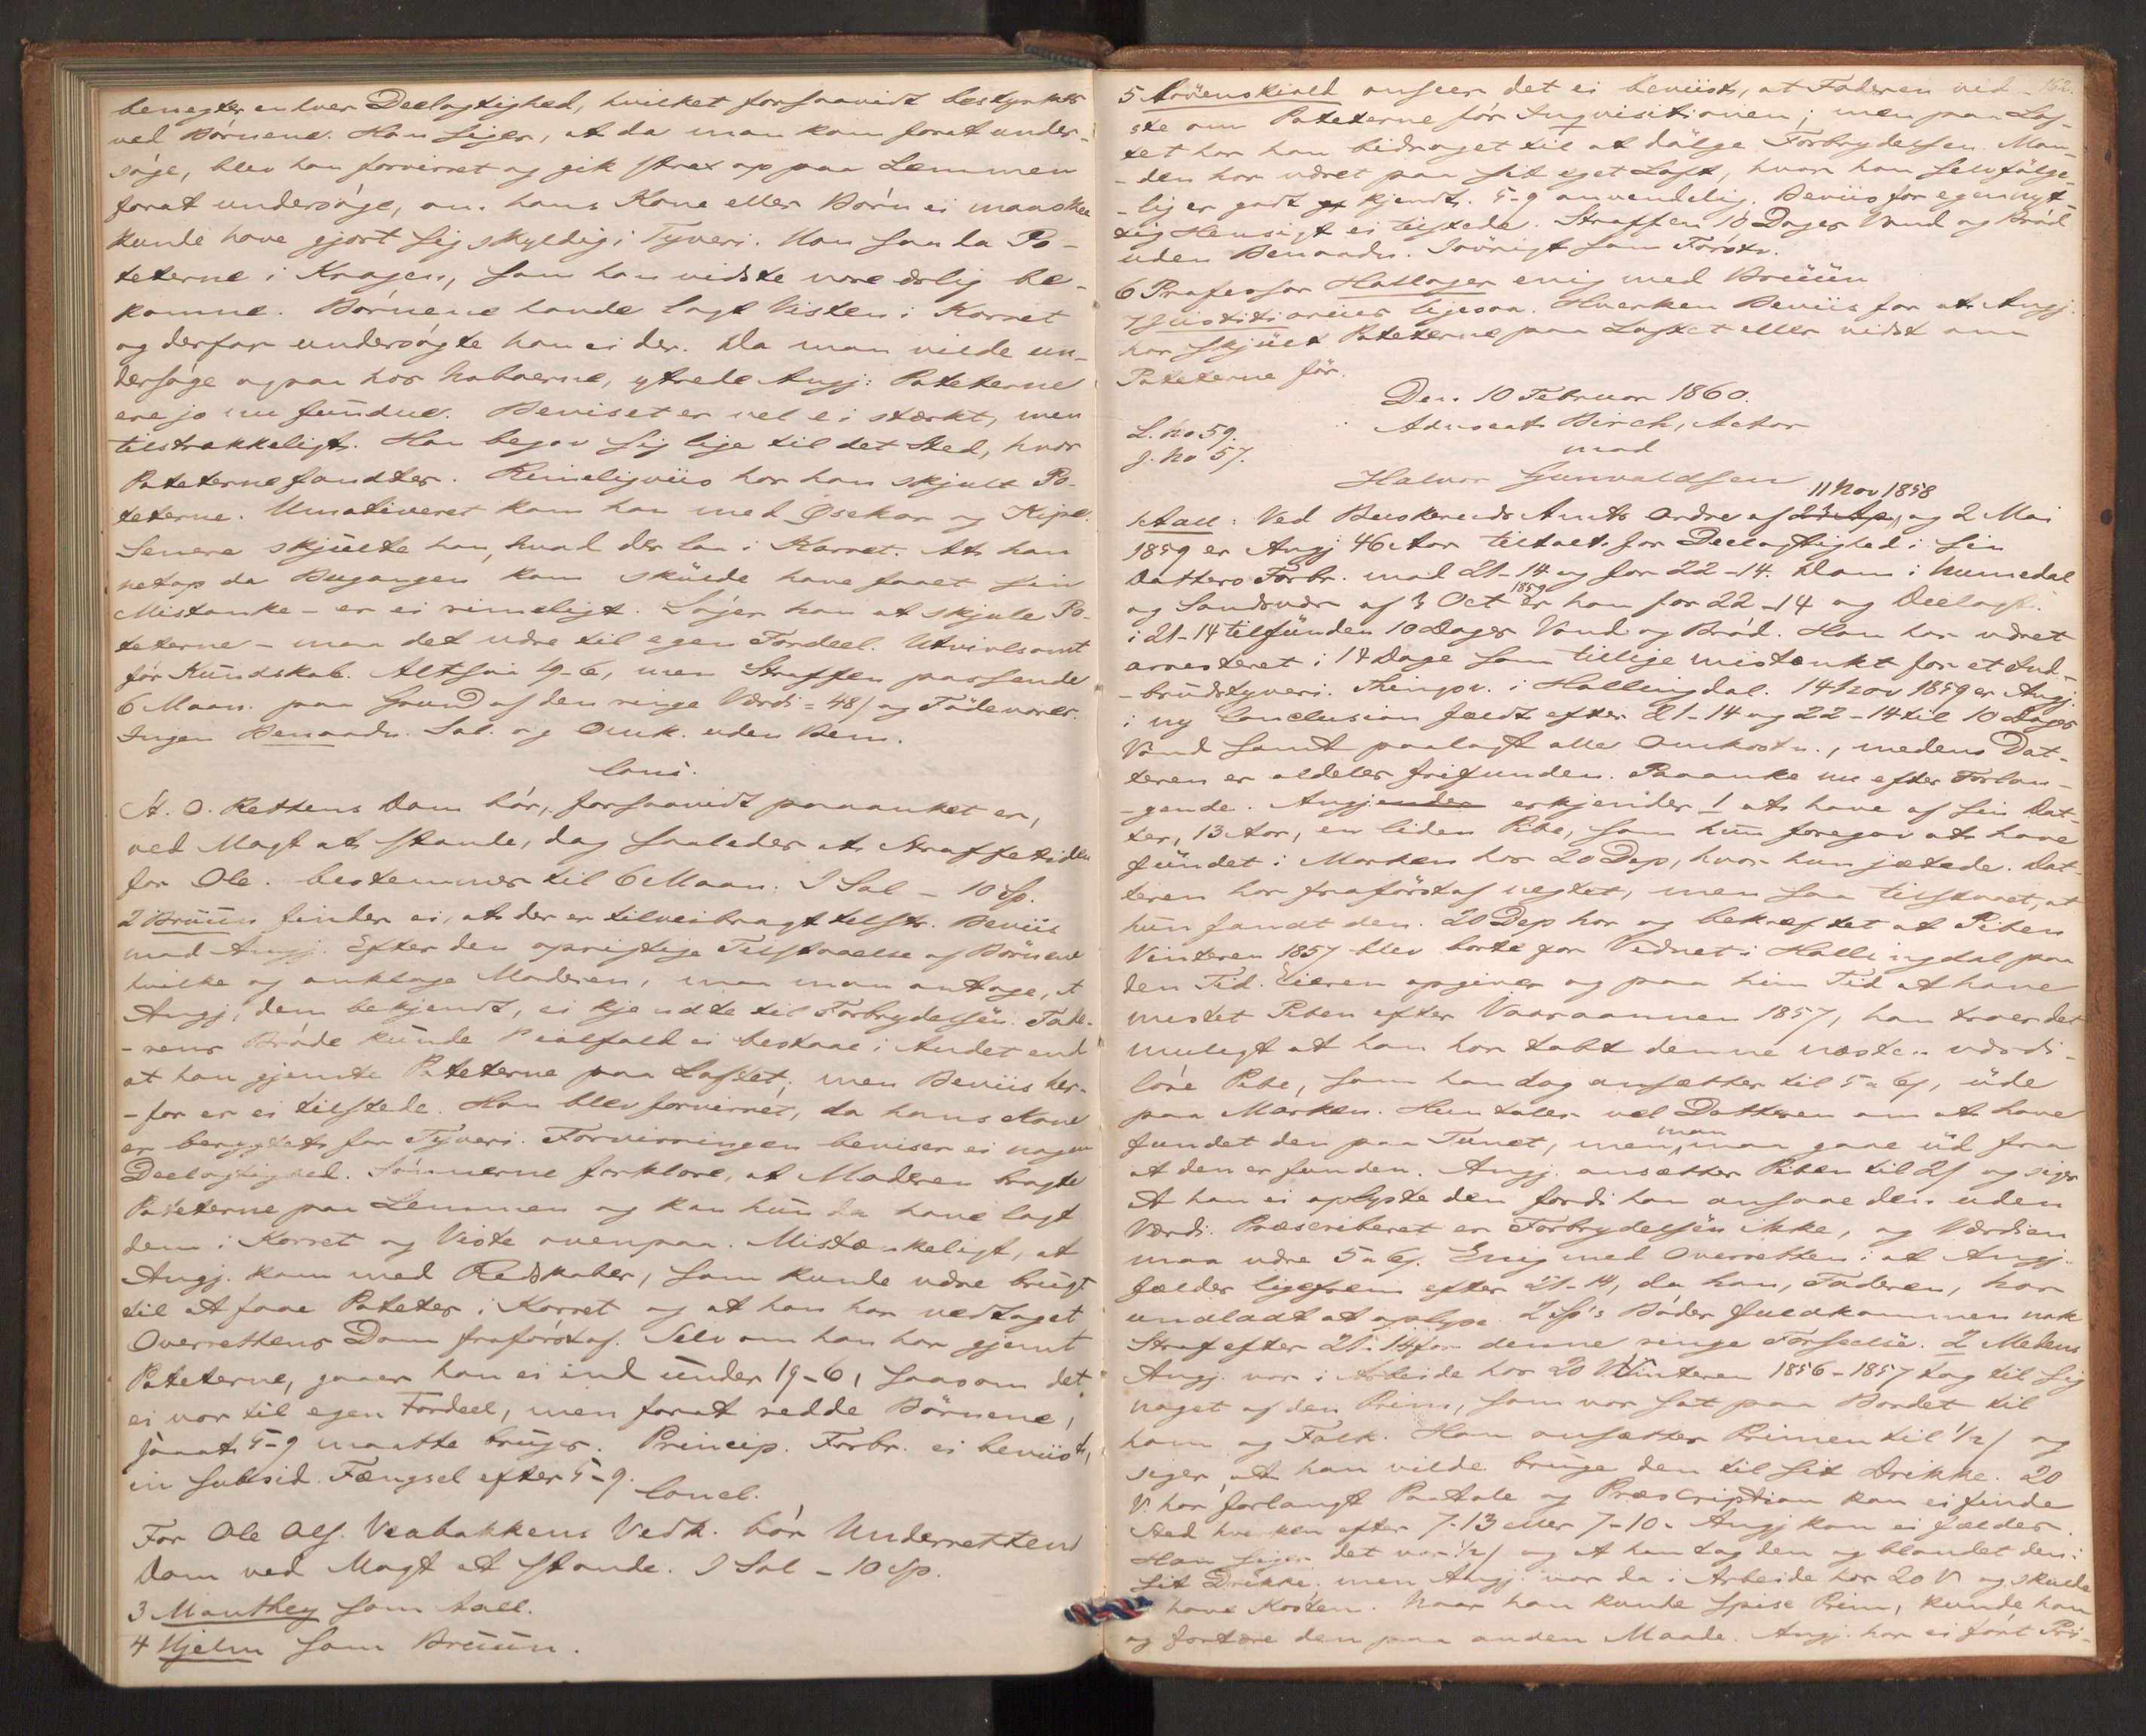 benegter enhver Deelagtighed, hvilket forsaavidt bestyrkes
ved Börnene. Han siger, at da man kom forat under-
söge, blev han forvirret og gik strax op paa Lemmen
forat undersöge, om hans Kone eller Börn ei maaskee
kunde have gjort sig skyldig i Tyveri. Han saa da Po-
teterne i Kragen, som han vidste vare ærlig be-
komne. Börnene havde lagt Visten i Karret
og derfor undersögte han ei der. Da man vilde un-
dersöge ogsaa hos Naboerne, ytrede Angj: Poteterne
ere jo nu fundne. Beviset er vel ei stærkt, men
tilstrækkeligt. Han begav sig lige til det Sted, hvor
Poteterne fandtes. Rimeligviis har han skjult Po-
teterne. Umotiveret kom han med Øsekar og Kipe.
Senere skjulte han, hvad der laa i Karret. At han
netop da Bugangen kom skulde have faaet sin
Mistanke - er ei rimeligt. Söger han at skjule Po-
teterne - maa det være til egen Fordeel. Utvivlsomt
för Kundskab. Altsaa 19-6, men Straffen passende
6 Maan. paa Grund af den ringe Værdi = 48 ʃ og Födevarer.
Ingen Benaadn. Sal. og Omk. uden Bem.
Conc.
A. O. Rettens Dom bör, forsaavidt paaanket er,
ved Magt at stande, dog saaledes at Straffetiden
for Ole. bestemmes til 6 Maan. I Sal - 10 Sp.
2 Bruun finder ei, at der er tilveiebragt tilstr. Beviis
mod Angj. Efter den oprigtige Tilstaaelse af Börnene
hvilke og anklage Moderen, maa man antage, at
Angj, dem bekjendt, ei kjendte til Forbrydelsen. Fade-
-rens Bröde kunde i ialfald ei bestaae i Andet end
at han gjemte Poteterne paa Loftet; men Beviis her-
-for er ei tilstede. Han blev forvirret, da hans Kone
er berygtet for Tyveri. Forvirringen beviser ei nogen
Deelagtighed. Sönnerne forklare, at Moderen bragte
Poteterne paa Lemmen og kan hun da have lagt
dem i Karret og Viste ovenpaa. Mistænkeligt, at
Angj. kom med Redskaber, som kunde være brugt
til at faae Poteter i Karret og at han har vedtaget
Overrettens Dom fraförstaf. Selv om han har gjemt
Poteterne, gaaer han ei ind under 19-6, saasom det
ei var til egen Fordeel, men forat redde Börnene,
saaat 5-9 maatte bruges. Princip. Forbr. ei beviist,
in subsid. Fængsel efter 5-9.
Concl.
For Ole Ols. Veabakkens Vedk. bör Underrettens
Dom ved Magt at stande. I Sal - 10 Sp.
3 Manthey som Aall.
4 Hjelm som Bruun.
162.
5 Lövenskiold anseer det ei beviist, at Faderen vid-
ste om Poteterne för Inqvisitionen; men paa Lof-
tet har han bidraget til at dölge Forbrydelsen. Man-
-den har været paa sit eget Loft, hvor han selvfölge-
-lig er godt kjendt. 5-9 anvendelig. Beviis for egennyt-
tig Hensigt ei tilstede. Straffen 10 Dages Vand og Bröd
uden Benaadn. Iövrigt som Förste.
6 Professor Hallager enig med Bruun
7 Justitiarius ligesaa. Hverken Beviis for at Angj.
har skjult Poteterne paa Loftet eller vidst om
Poteterne för.
Den 10 Februar 1860.
L. No 59. Advocat Birch, Actor
J. No 57. mod
Halvor Gunvaldsen
11 Nov 1858
1 Aall: Ved Buskeruds Amts Ordre af 23 Ap, og 2 Mai
1859 er Angj 46 Aar tiltalt for Deelagtighed i sin
Datters Forbr. mod 21-14 og for 22-14. Dom i Numedal
og Sandsvær af 3 Oct 1859 er han for 22-14 og Deelagt.
i 21-14 tilfunden 10 Dages Vand og Bröd. Han har været
arresteret i 18 Dage som tillige mistænkt for et Ind-
-brudstyveri. Thingsv. i Hallingdal. 14 Nov 1859 er Angj.
i ny Conclusion fældt efter 21-14 og 22-14 til 10 Dages
Vand samt paalagt alle Omkostn., medens Dat-
teren er aldeles frifunden. Paaanke nu efter Forlan-
-gende. Angjender erkjender 1 at have af sin Dat-
ter, 13 Aar, en liden Pibe, som hun foregav at have
fundet i Marken hos 20 Dep, hvor hun jætede. Dat-
teren har fraförstaf negtet, men saa tilstaaet, at
hun fandt den. 20 Dep har og bekræftet at Piben
Vinteren 1857 blev borte for Vidnet i Hallingdal paa
den Tid. Eieren opgiver og paa hin Tid at have
mistet Piben efter Vaaraannen 1857, han troer det
muligt at han har tabt denne næsten værdi-
löse Pibe, som han dog ansætter til 5 a 6 ʃ, ude
paa Marken. Hun taler vel Datteren om at have
fundet den paa Tunet, men man maa gaae ud fra
at den er funden. Angj. ansætter Piben til 2 ʃ og siger
at han ei oplyste den fordi han ansaae den uden
Værdi. Præscriberet er Forbrydelsen ikke, og Værdien
maa være 5 a 6 ʃ. Enig med Overretten i at Angj.
fælder ligefrem efter 21-14, da han, Faderen, har
undladt at oplyse. 2 Sp's Böder fuldkommen nok
Straf efter 21-14 for denne ringe Forseelse. 2 Medens
Angj. var i Arbeide hos 20 V Vinteren 1856-1857 tog til sig
noget af den Prim, som var sat paa Bordet til
ham og Folk. Han ansætter Primen til 1/2 ʃ og
siger, at han vilde bruge den til sit Drikke. 20
V. har forlangt Paatale og Præscription kan ei finde
Sted hverken efter 7-13 eller 7-10. Angj kan ei fældes.
Han siger det var 1/2 ʃ og at han tog den og blandet den i
sit Drikke; men Angj. var da i Arbeide hos 20 V og skulde
have Kosten. Naar han kunde spise Prim, kunde han
og fortære den paa anden Maade. Angj. har ei fört Pri-